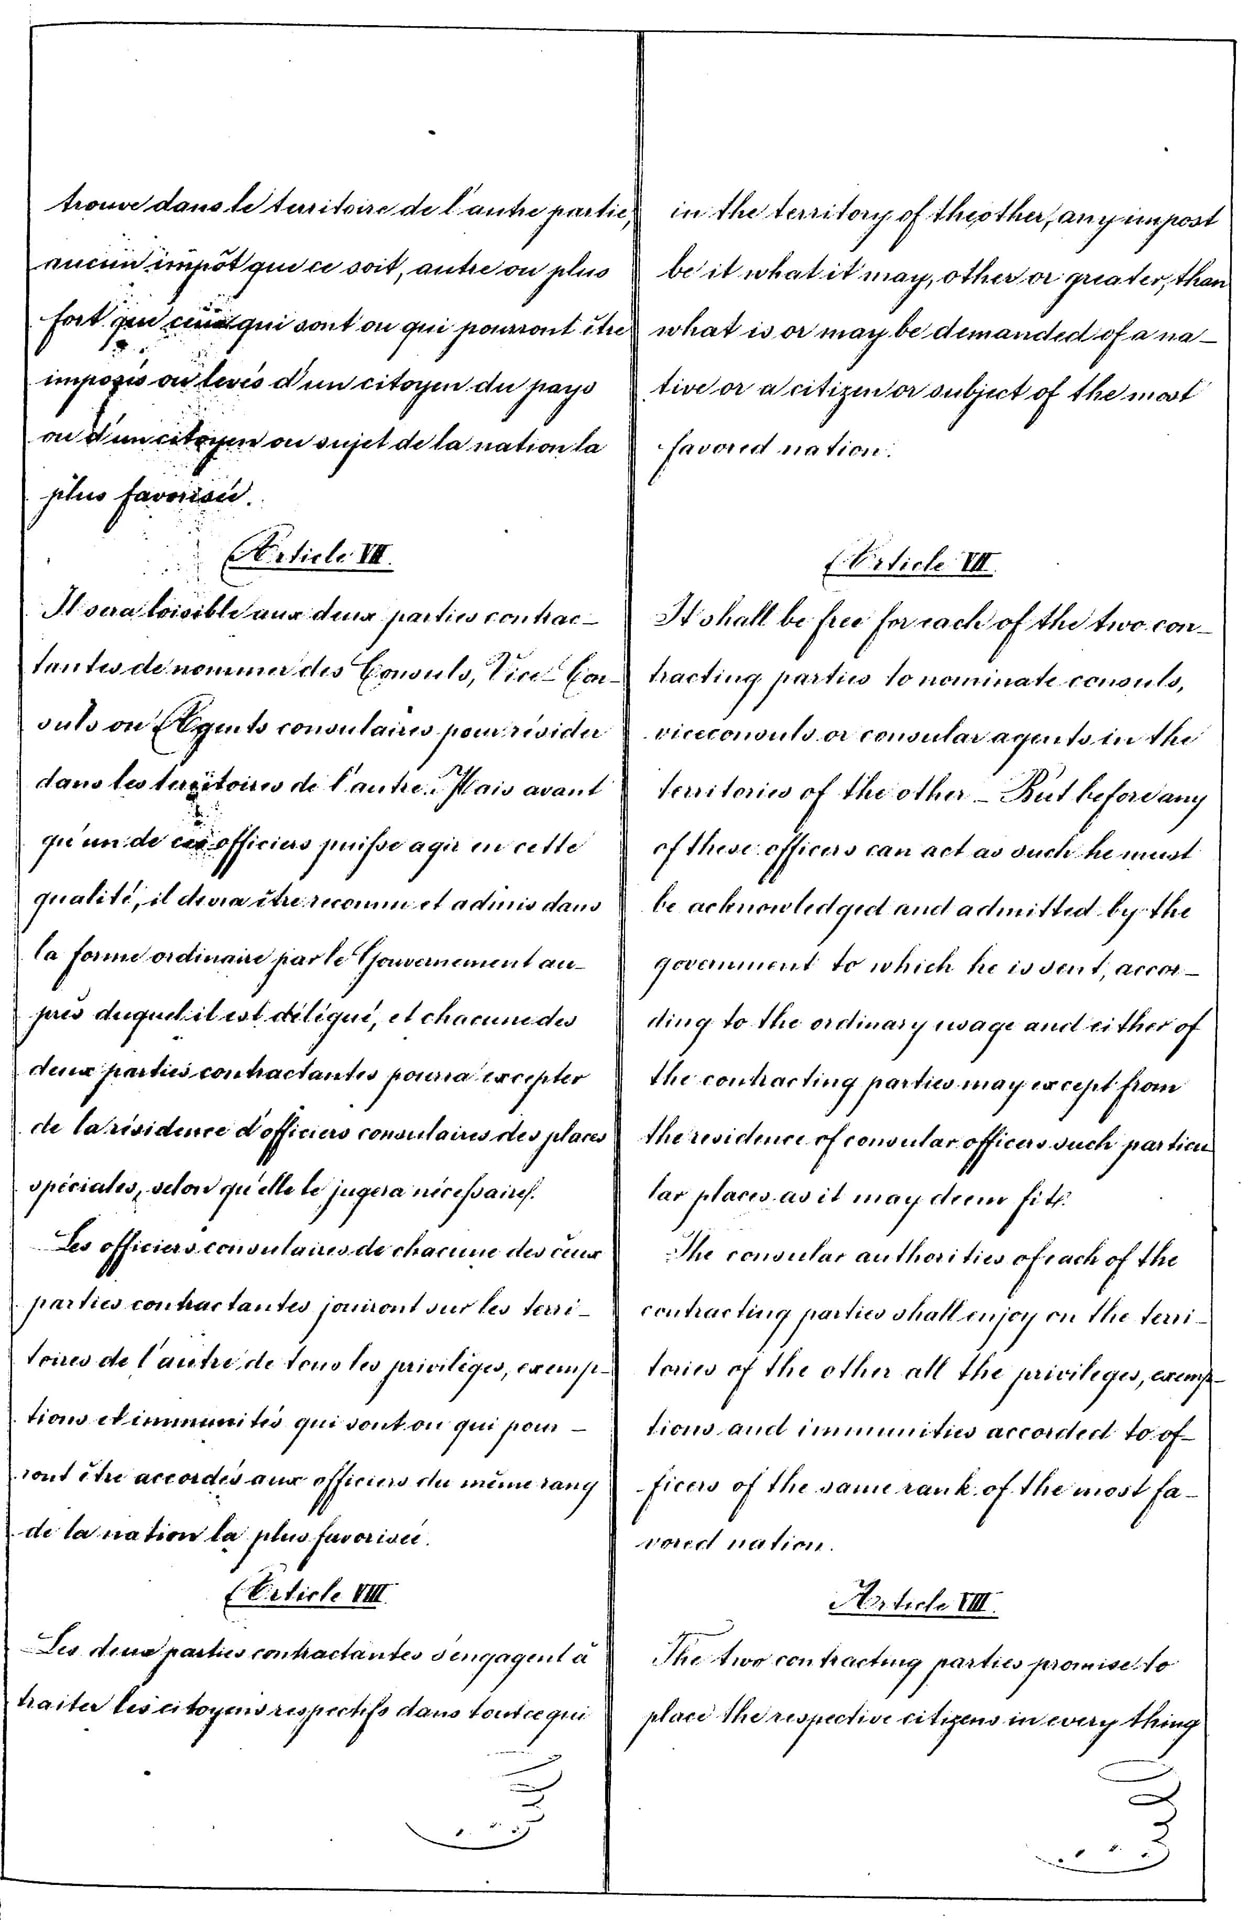 trouve dans le territoire de l'autre partie,
aucun impôt que ce soit, autre ou plus
fort que ceux qui sont ou qui pourront être
imposés ou levés d'un citoyen du pays
ou d'un citoyen ou sujet de la nation la
plus favorisée.
Article VII.
Il sera loisible aux deux parties contrac-
tantes de nommer des Consuls, Vice-Con-
suls ou Agents consulaires pour résider
dans les territoires de l'autre. Mais avant
qu'un de ces officiers puisse agir en cette
qualité, il devra être reconnu et admis dans
la forme ordinaire par le Gouvernement au-
près duquel il est délégué, et chacune des
deux parties contractantes pourra excepter
de la résidence d'officiers consulaires des places
spéciales, selon qu'elle le jugera nécessaire.
Les officiers consulaires de chacune des deux
parties contractantes jouiront sur les terri-
toires de l'autre de tous les privilèges, exemp-
tions et immunités qui sont ou qui pour-
ront être accordés aux officiers du même rang
de la nation la plus favorisée.
Article VIII.
Les deux parties contractantes s'engagent à
traiter les citoyens respectifs dans tout ce qui
in the territory of the other, any impost
be it what it may, other or greater, than
what is or may be demanded of a na-
tive or a citizen or subject of the most
favored nation.
Article VII.
It shall be free for each of the two con-
tracting parties to nominate consuls,
viceconsuls or consular agents in the
territories of the other - But before any
of these officers can act as such he must
be acknowledged and admitted by the
government to which he is sent, accor-
ding to the ordinary usage and either of
the contracting parties may except from
the residence of consular officers such particu-
lar places as it may deem fit.
The consular authorities of each of the
contracting parties shall enjoy on the terri-
tories of the other all the privileges, exemp-
tions and immunities accorded to of-
ficers of the same rank of the most fa-
vored nation.
Article VIII.
The two contracting parties promise to
place the respective citizens in every thing